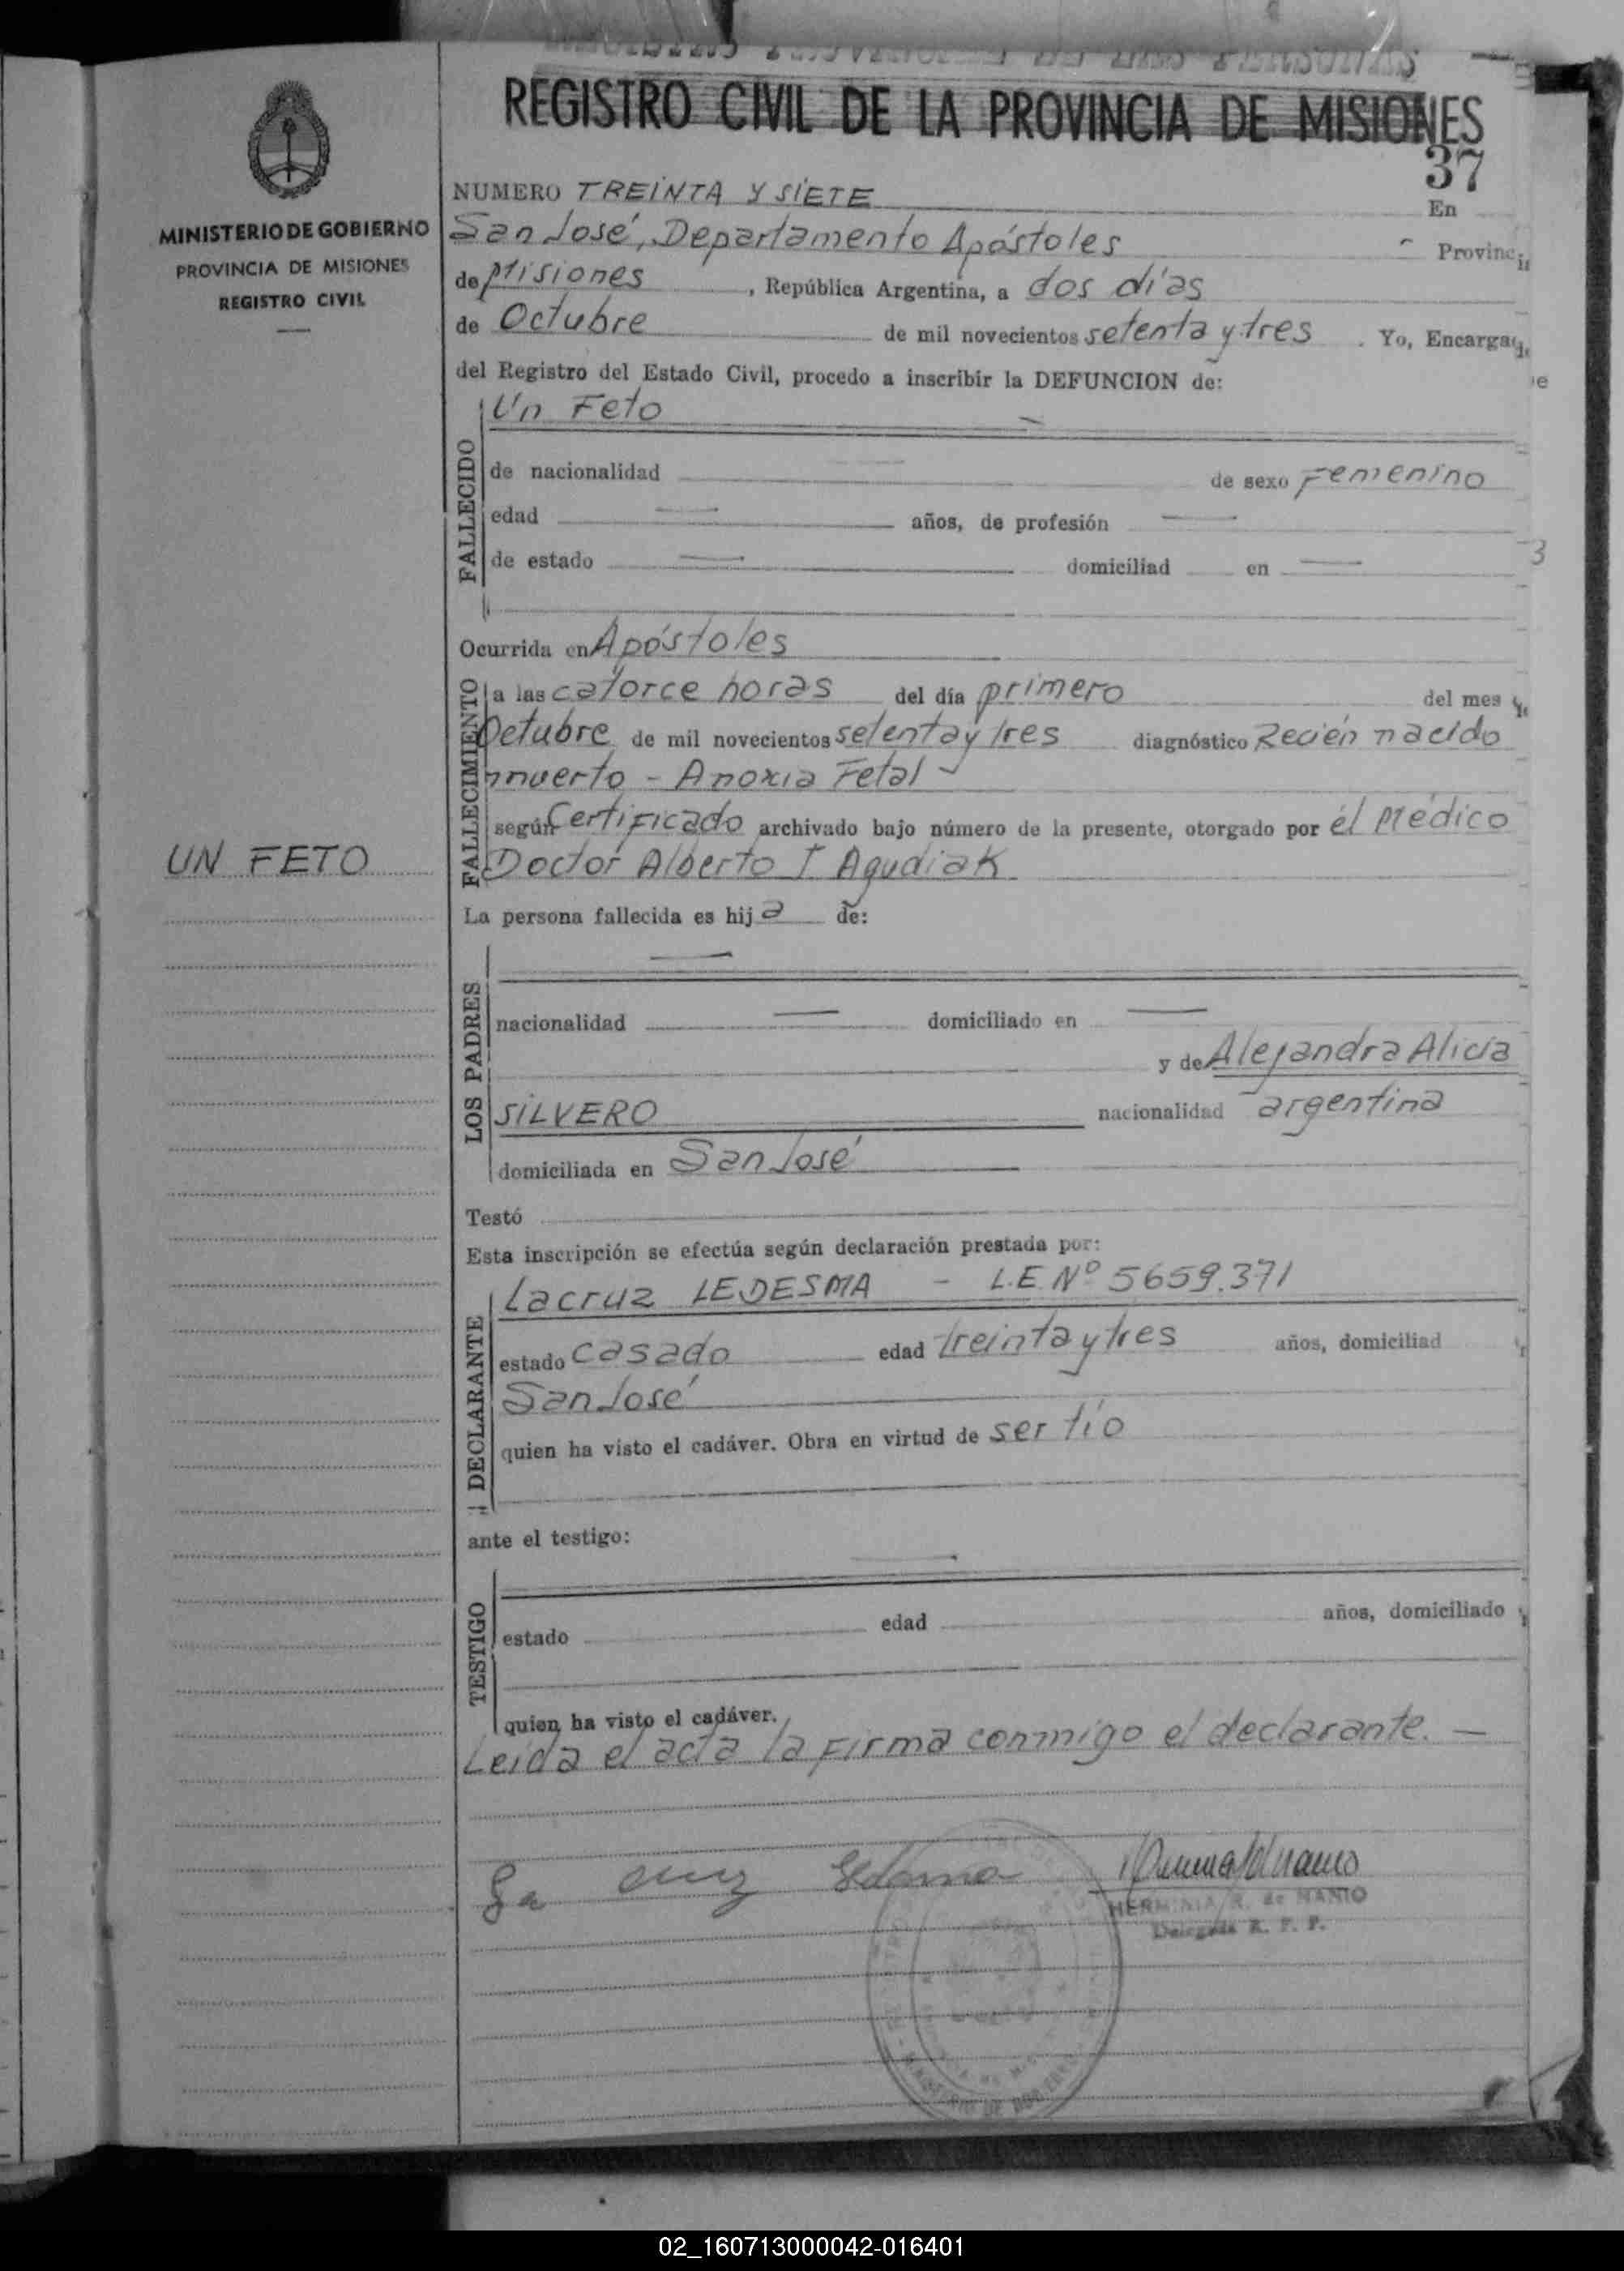 REGISTRO CIVIL DE LA PROVINCIA DE MISIONES
37
MINISTERIO DE GOBIERNO
PROVINCIA DE MISIONES
REGISTRO CIVIL
NUMERO TREINTA Y SIETE
En
San José, Departamento Apóstoles Provinc
de Misiones, República Argentina, a dos días
de Octubre de mil novecientos setenta y tres. Yo, Encarga
del Registro del Estado Civil, procedo a inscribir la DEFUNCION de:
Un Feto
FALLECIDO
de nacionalidad — de sexo Femenino
edad — años, de profesión —
de estado — domiciliad en —
Ocurrida en Apóstoles
FALLECIMIENTO
a las catorce horas del día primero del mes
Octubre de mil novecientos setenta y tres diagnóstico Recién nacido
muerto - Anoxia Fetal
según Certificado archivado bajo número de la presente, otorgado por el Médico
Doctor Alberto I Agudiak
UN FETO
La persona fallecida es hija de:
—
LOS PADRES
nacionalidad — domiciliado en —
y de Alejandra Alicia
SILVERO nacionalidad argentina
domiciliada en San José
Testó
Esta inscripción se efectúa según declaración prestada por:
DECLARANTE
Lacruz LEDESMA - L.E. Nº 5659.371
estado casado edad treinta y tres años, domiciliad
San José
quien ha visto el cadáver. Obra en virtud de ser tío
ante el testigo:
—
TESTIGO
estado edad años, domiciliado
quien ha visto el cadáver.
Leída el acta la firma conmigo el declarante. —
La cruz Ledesma
HERMINIA R. de NANIO
Delegada R. P. P.
02_160713000042-016401